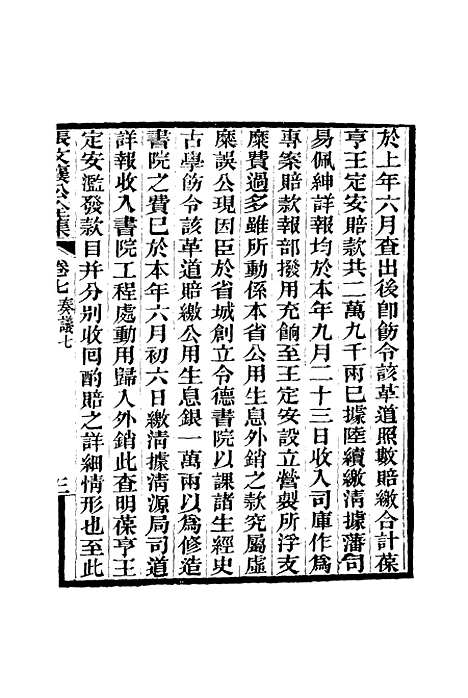 於上年六月查出後卽飭令該革道照數賠繳合計葆
亨王定安賠款共二萬九千兩已據陸續繳清據藩司
易佩紳詳報均於本年九月二十三日收入司庫作爲
專案賠款報部撥用充餉至王定安設立營製所浮支
糜費過多雖所動係本省公用生息外銷之款究屬虛
糜誤公現因臣於省城創立令德書院以課諸生經史
古學飭令該革道賠繳公用生息銀一萬兩以爲修造
書院之費已於本年六月初六日繳清據清源局司道
詳報收入書院工程處動用歸入外銷此查明葆亨王
定安濫發款目并分別收回酌賠之詳細情形也至此
張文襄公全集
卷七奏議七
三